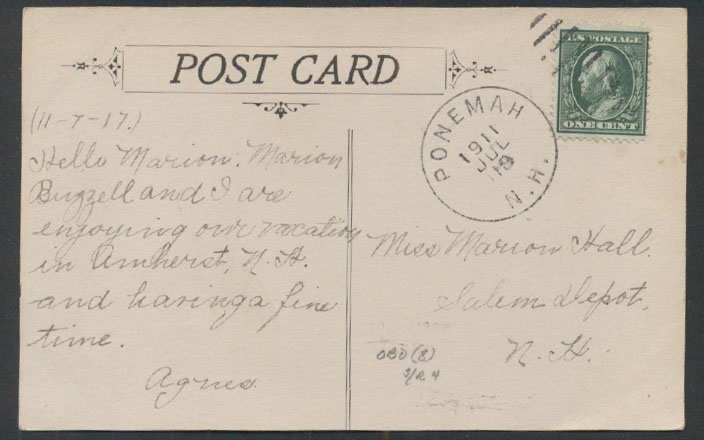 POST CARD
U.S. POSTAGE
ONE CENT
PONEMAH
1911
JUL
N.H.
(11-7-17.)
Hello Marion: Marion
Buzzell and I are
enjoying our vacation
in Amherst, N.H.
and having a fine
time.
Agnes.
Miss Marion Hall.
Salem Depot,
N.H.